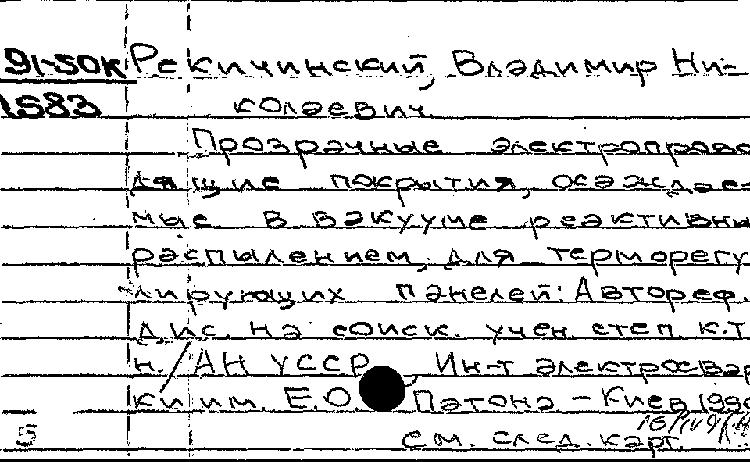 91-50К Рекичинский, Владимир Ни-
1583 колаевич
Прозрачные электропрово
дящие покрытия, осаждае-
мые в вакууме реактивны
распылением, для терморегу
лирующих панелей: Автореф.
дис. на соиск. учен. степ. к.т.
н. / АН УССР, Ин-т электросвар
ки им. Е.О. Патона - Киев, 1990
5 см. след. карт.